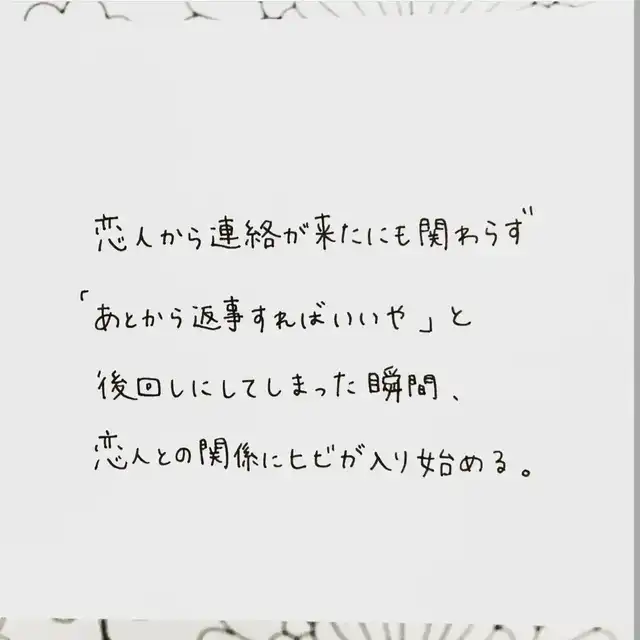 恋人から連絡が来たにも関わらず
「あとから返事すればいいや」と
後回しにしてしまった瞬間、
恋人との関係にヒビが入り始める。